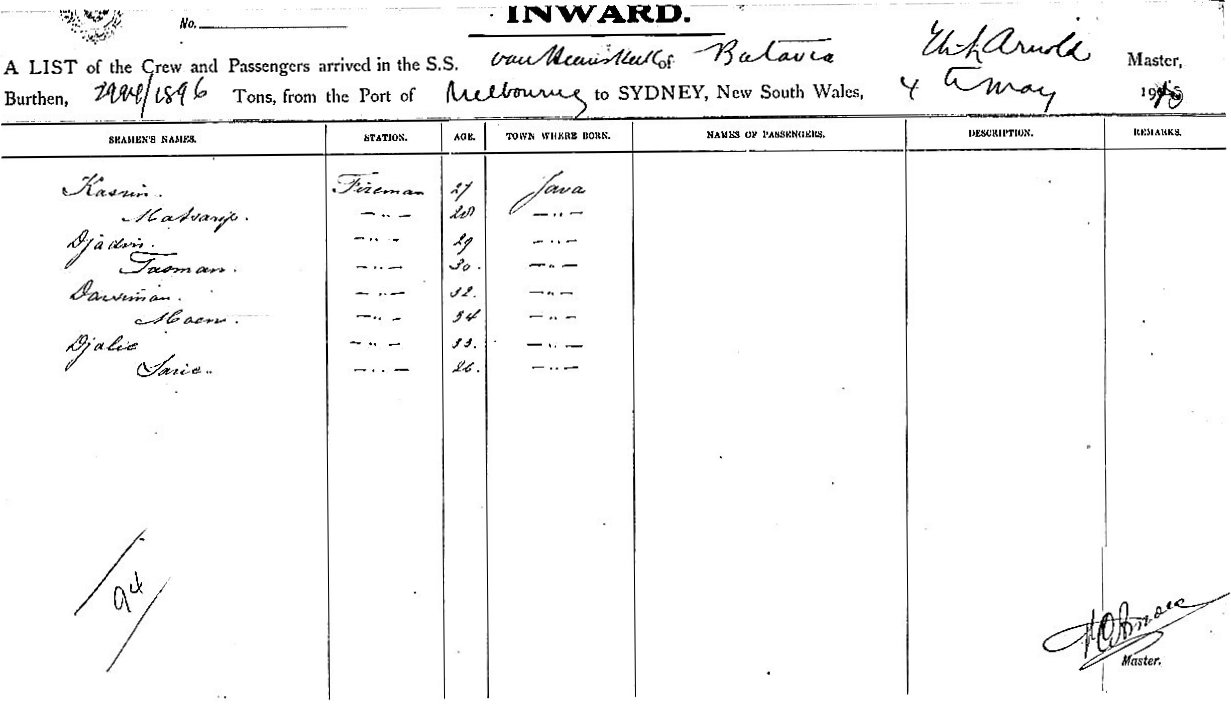 INWARD.
No.
A LIST of the Crew and Passengers arrived in the S.S. of Batavia Arnold Master,
Burthen, /1896 Tons, from the Port of Melbourne to SYDNEY, New South Wales, 4 May 19
SEAMEN'S NAMES. STATION. AGE. TOWN WHERE BORN. NAMES OF PASSENGERS. DESCRIPTION. REMARKS.
Kasrin. Fireman 27 Java
Matsarip. —"— 28 —"—
—"— 29 —"—
Tasman. —"— 30. —"—
—"— 32. —"—
Moen. —"— 34 —"—
Djalie —"— 33. —"—
Sarie. —"— 26. —"—
94
Master.